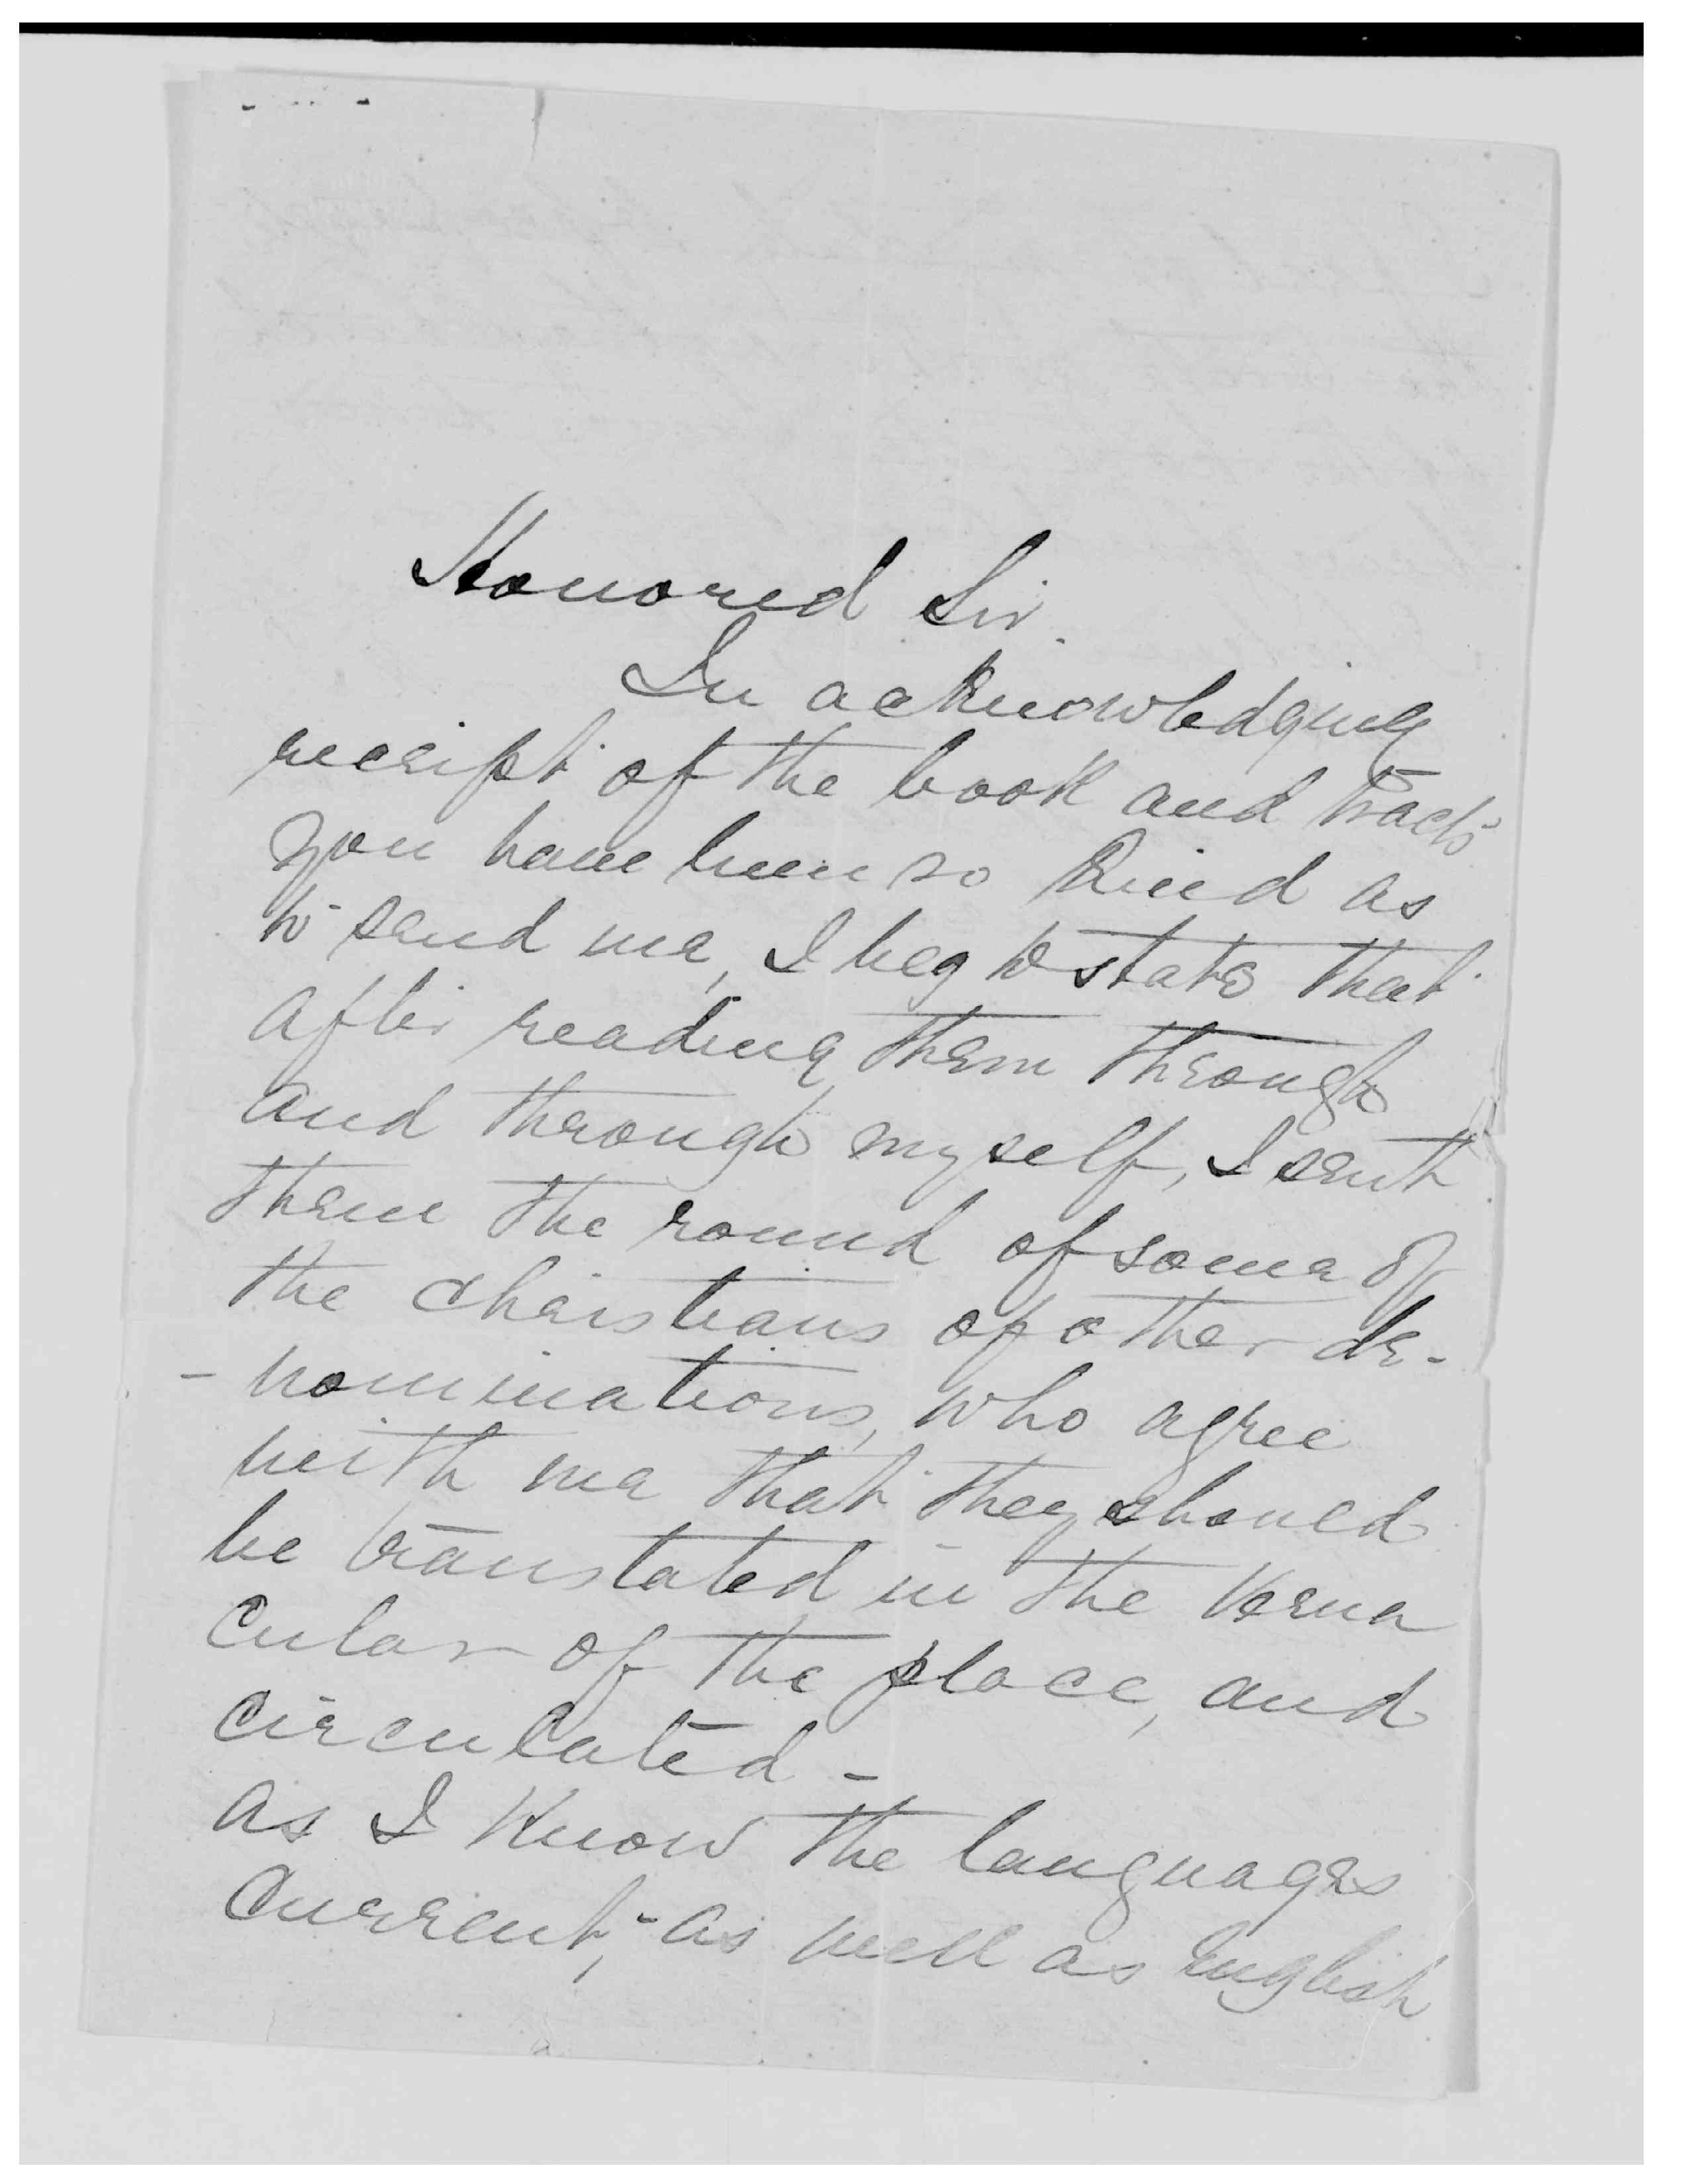 Honored Sir.
In acknowledging
receipt of the book and tracts
you have been so kind as
to send me, I beg to state that
after reading them through
and through myself, I sent
them the round of some of
the Christians of other de-
- nominations, who agree
with me that they should
be translated in the Verna
cular of the place, and
circulated -
As I know the languages
current, as well as English